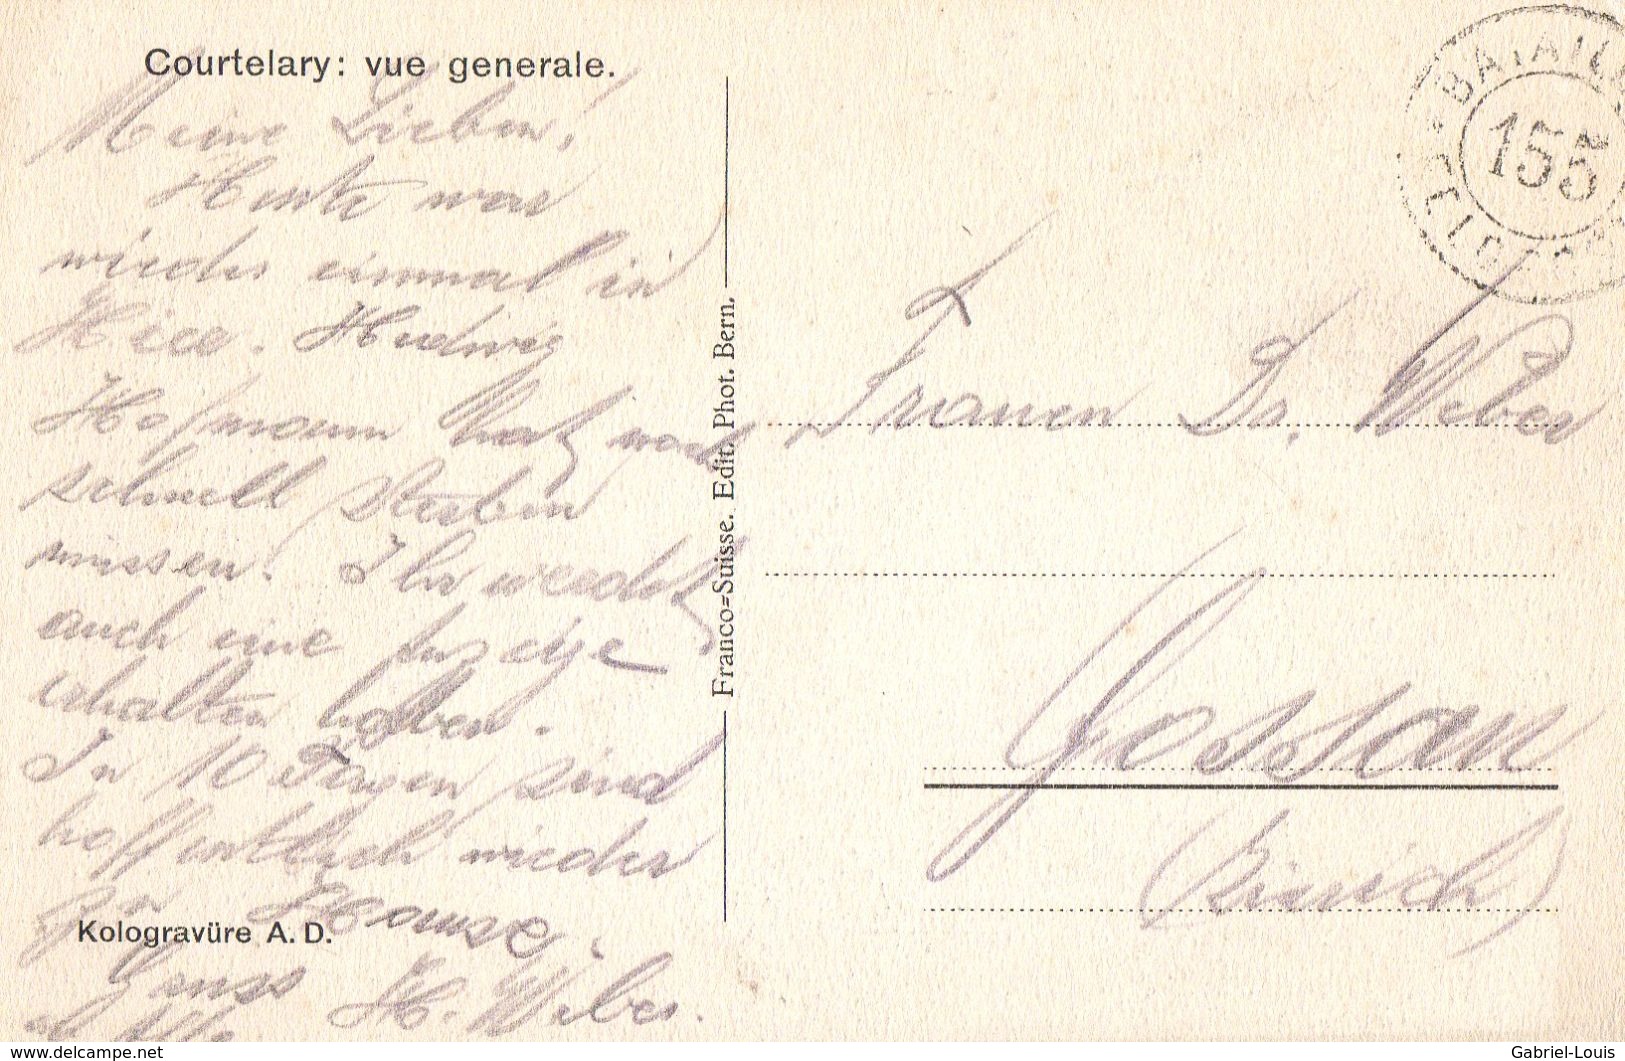 Courtelary: vue generale.
Meine Lieben,
Heute war
wieder einmal in
Hudwig
Hofmann hat noch
schnell sterben
müssen. Ihr werdet
auch eine Anzeige
erhalten haben.
In 10 Tagen sind
hoffentlich wieder
zu Hause.
Gruss
H. Weber.
an Alle
Kologravüre A. D.
Franco=Suisse. Edit. Phot. Bern.
BATAILL
155
Frauen Dr. Weber
Gossau
(Zürich)
www.delcampe.net
Gabriel-Louis